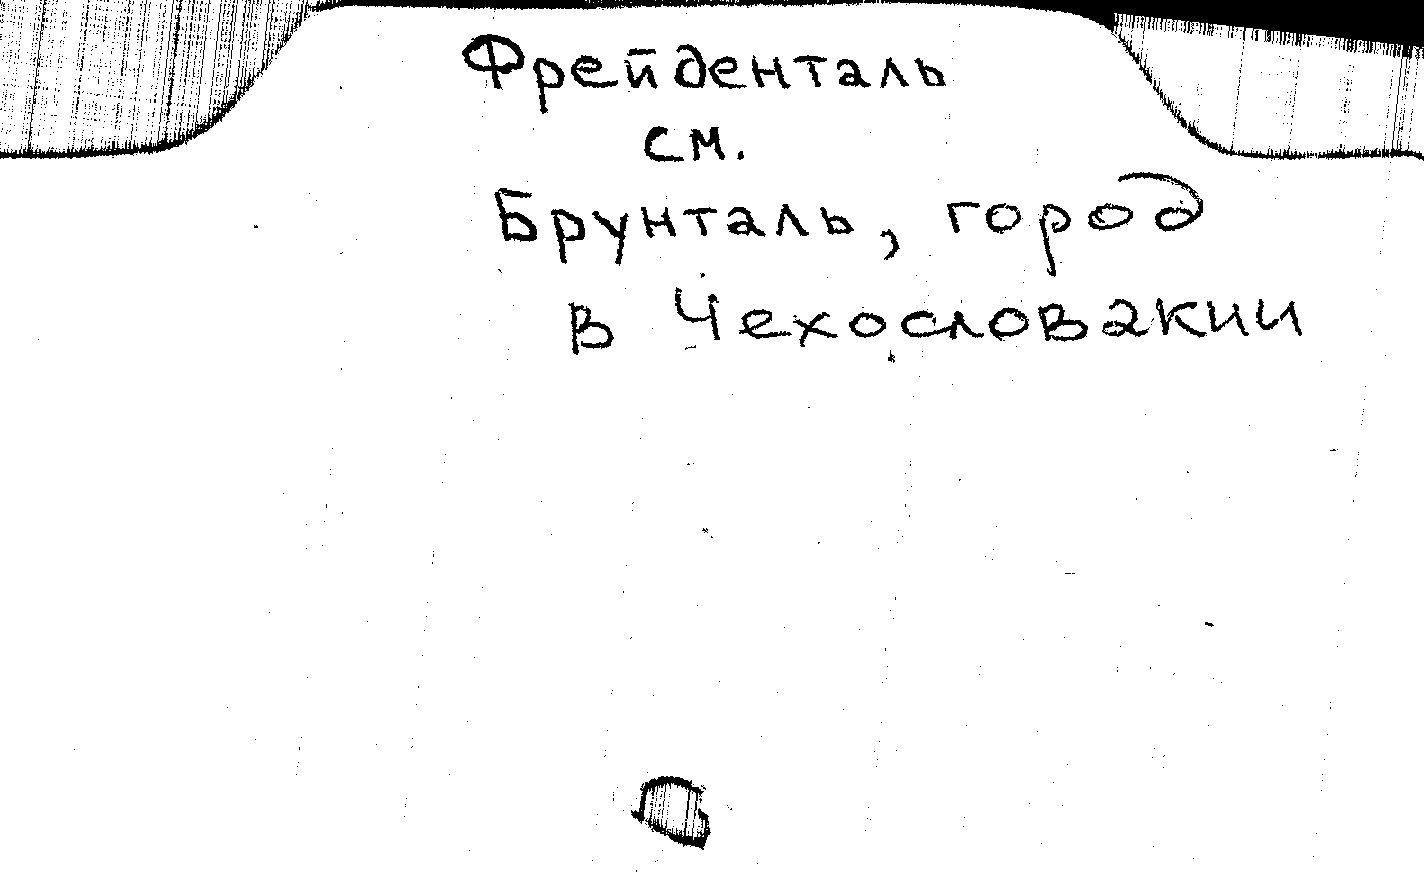 Фрейденталь
см.
Брунталь, город
в Чехословакии